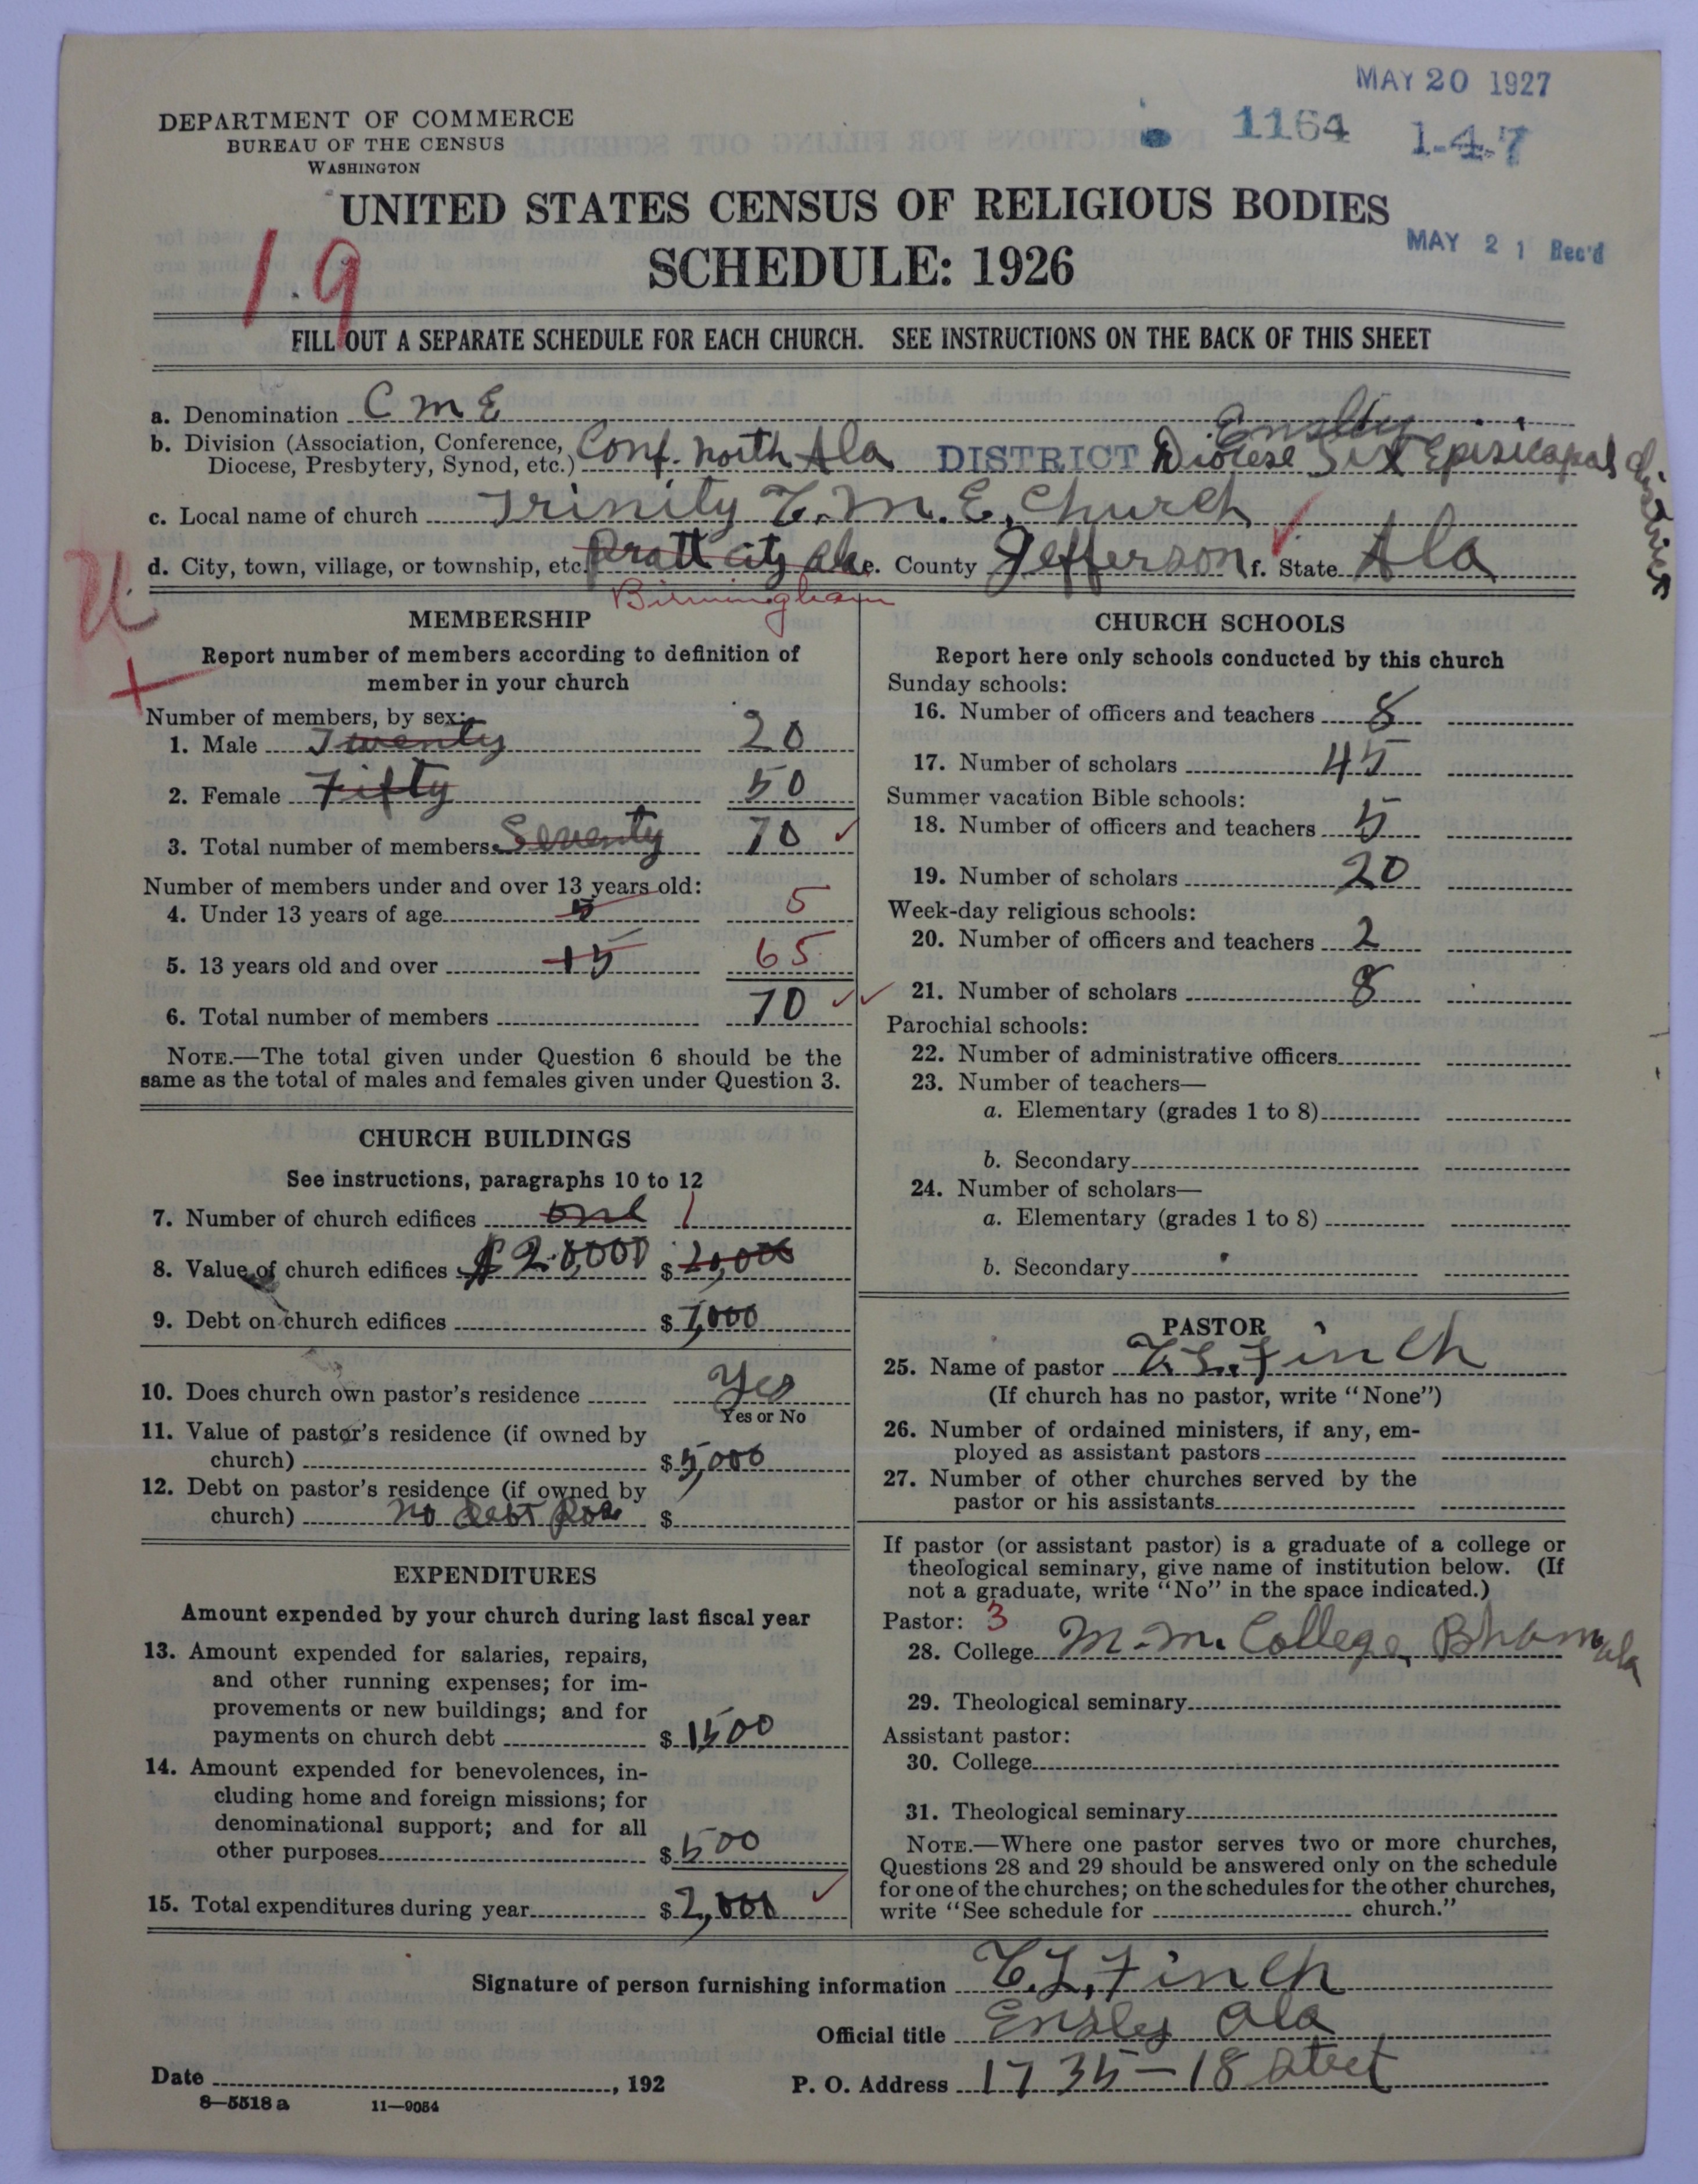 MAY 20 1927
DEPARTMENT OF COMMERCE
BUREAU OF THE CENSUS
WASHINGTON
1164 1-4-7
UNITED STATES CENSUS OF RELIGIOUS BODIES
SCHEDULE: 1926
MAY 21 Rec'd
19
FILL OUT A SEPARATE SCHEDULE FOR EACH CHURCH. SEE INSTRUCTIONS ON THE BACK OF THIS SHEET
a. Denomination C M E
b. Division (Association, Conference, Diocese, Presbytery, Synod, etc.) Conf. North Ala DISTRICT Ensley Diocese Six Episicapal district
c. Local name of church Trinity C. M. E. Church
d. City, town, village, or township, etc. Pratt City Ala e. County Jefferson f. State Ala
Birmingham
U
MEMBERSHIP
Report number of members according to definition of
member in your church
Number of members, by sex:
1. Male Twenty 20
2. Female Fifty 50
3. Total number of members Seventy 70
Number of members under and over 13 years old:
4. Under 13 years of age 5 5
5. 13 years old and over 15 65
6. Total number of members 70
NOTE.—The total given under Question 6 should be the
same as the total of males and females given under Question 3.
CHURCH BUILDINGS
See instructions, paragraphs 10 to 12
7. Number of church edifices one 1
8. Value of church edifices $20,000 $ 20,000
9. Debt on church edifices $ 7,000
10. Does church own pastor's residence Yes
Yes or No
11. Value of pastor's residence (if owned by
church) $ 5,000
12. Debt on pastor's residence (if owned by
church) no debt $
EXPENDITURES
Amount expended by your church during last fiscal year
13. Amount expended for salaries, repairs,
and other running expenses; for im-
provements or new buildings; and for
payments on church debt $ 1500
14. Amount expended for benevolences, in-
cluding home and foreign missions; for
denominational support; and for all
other purposes $ 500
15. Total expenditures during year $ 2,000
CHURCH SCHOOLS
Report here only schools conducted by this church
Sunday schools:
16. Number of officers and teachers 8
17. Number of scholars 45
Summer vacation Bible schools:
18. Number of officers and teachers 5
19. Number of scholars 20
Week-day religious schools:
20. Number of officers and teachers 2
21. Number of scholars 8
Parochial schools:
22. Number of administrative officers
23. Number of teachers—
a. Elementary (grades 1 to 8)
b. Secondary
24. Number of scholars—
a. Elementary (grades 1 to 8)
b. Secondary
PASTOR
25. Name of pastor C. L. Finch
(If church has no pastor, write "None")
26. Number of ordained ministers, if any, em-
ployed as assistant pastors
27. Number of other churches served by the
pastor or his assistants
If pastor (or assistant pastor) is a graduate of a college or
theological seminary, give name of institution below. (If
not a graduate, write "No" in the space indicated.)
Pastor: 3
28. College M. M. College, Bham Ala
29. Theological seminary
Assistant pastor:
30. College
31. Theological seminary
NOTE.—Where one pastor serves two or more churches,
Questions 28 and 29 should be answered only on the schedule
for one of the churches; on the schedules for the other churches,
write "See schedule for church."
Signature of person furnishing information C. L. Finch
Official title Ensley Ala
Date , 192 P. O. Address 1735 — 18 Street
8—5518 a 11—9054